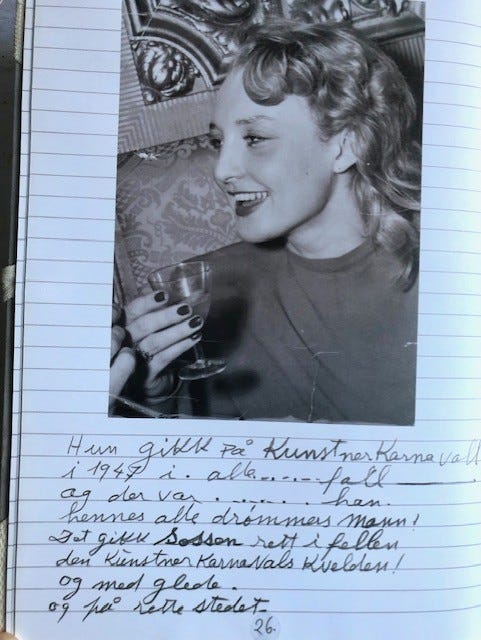 Hun gikk på Kunstnerkarnevall
i 1947 i. alle.....fall
og der var.......han.
hennes alle drømmers mann!
Det gikk Sossen rett i fellen
den Kunstnerkarnevals kvelden!
og med glede.
og på rette stedet-
26.